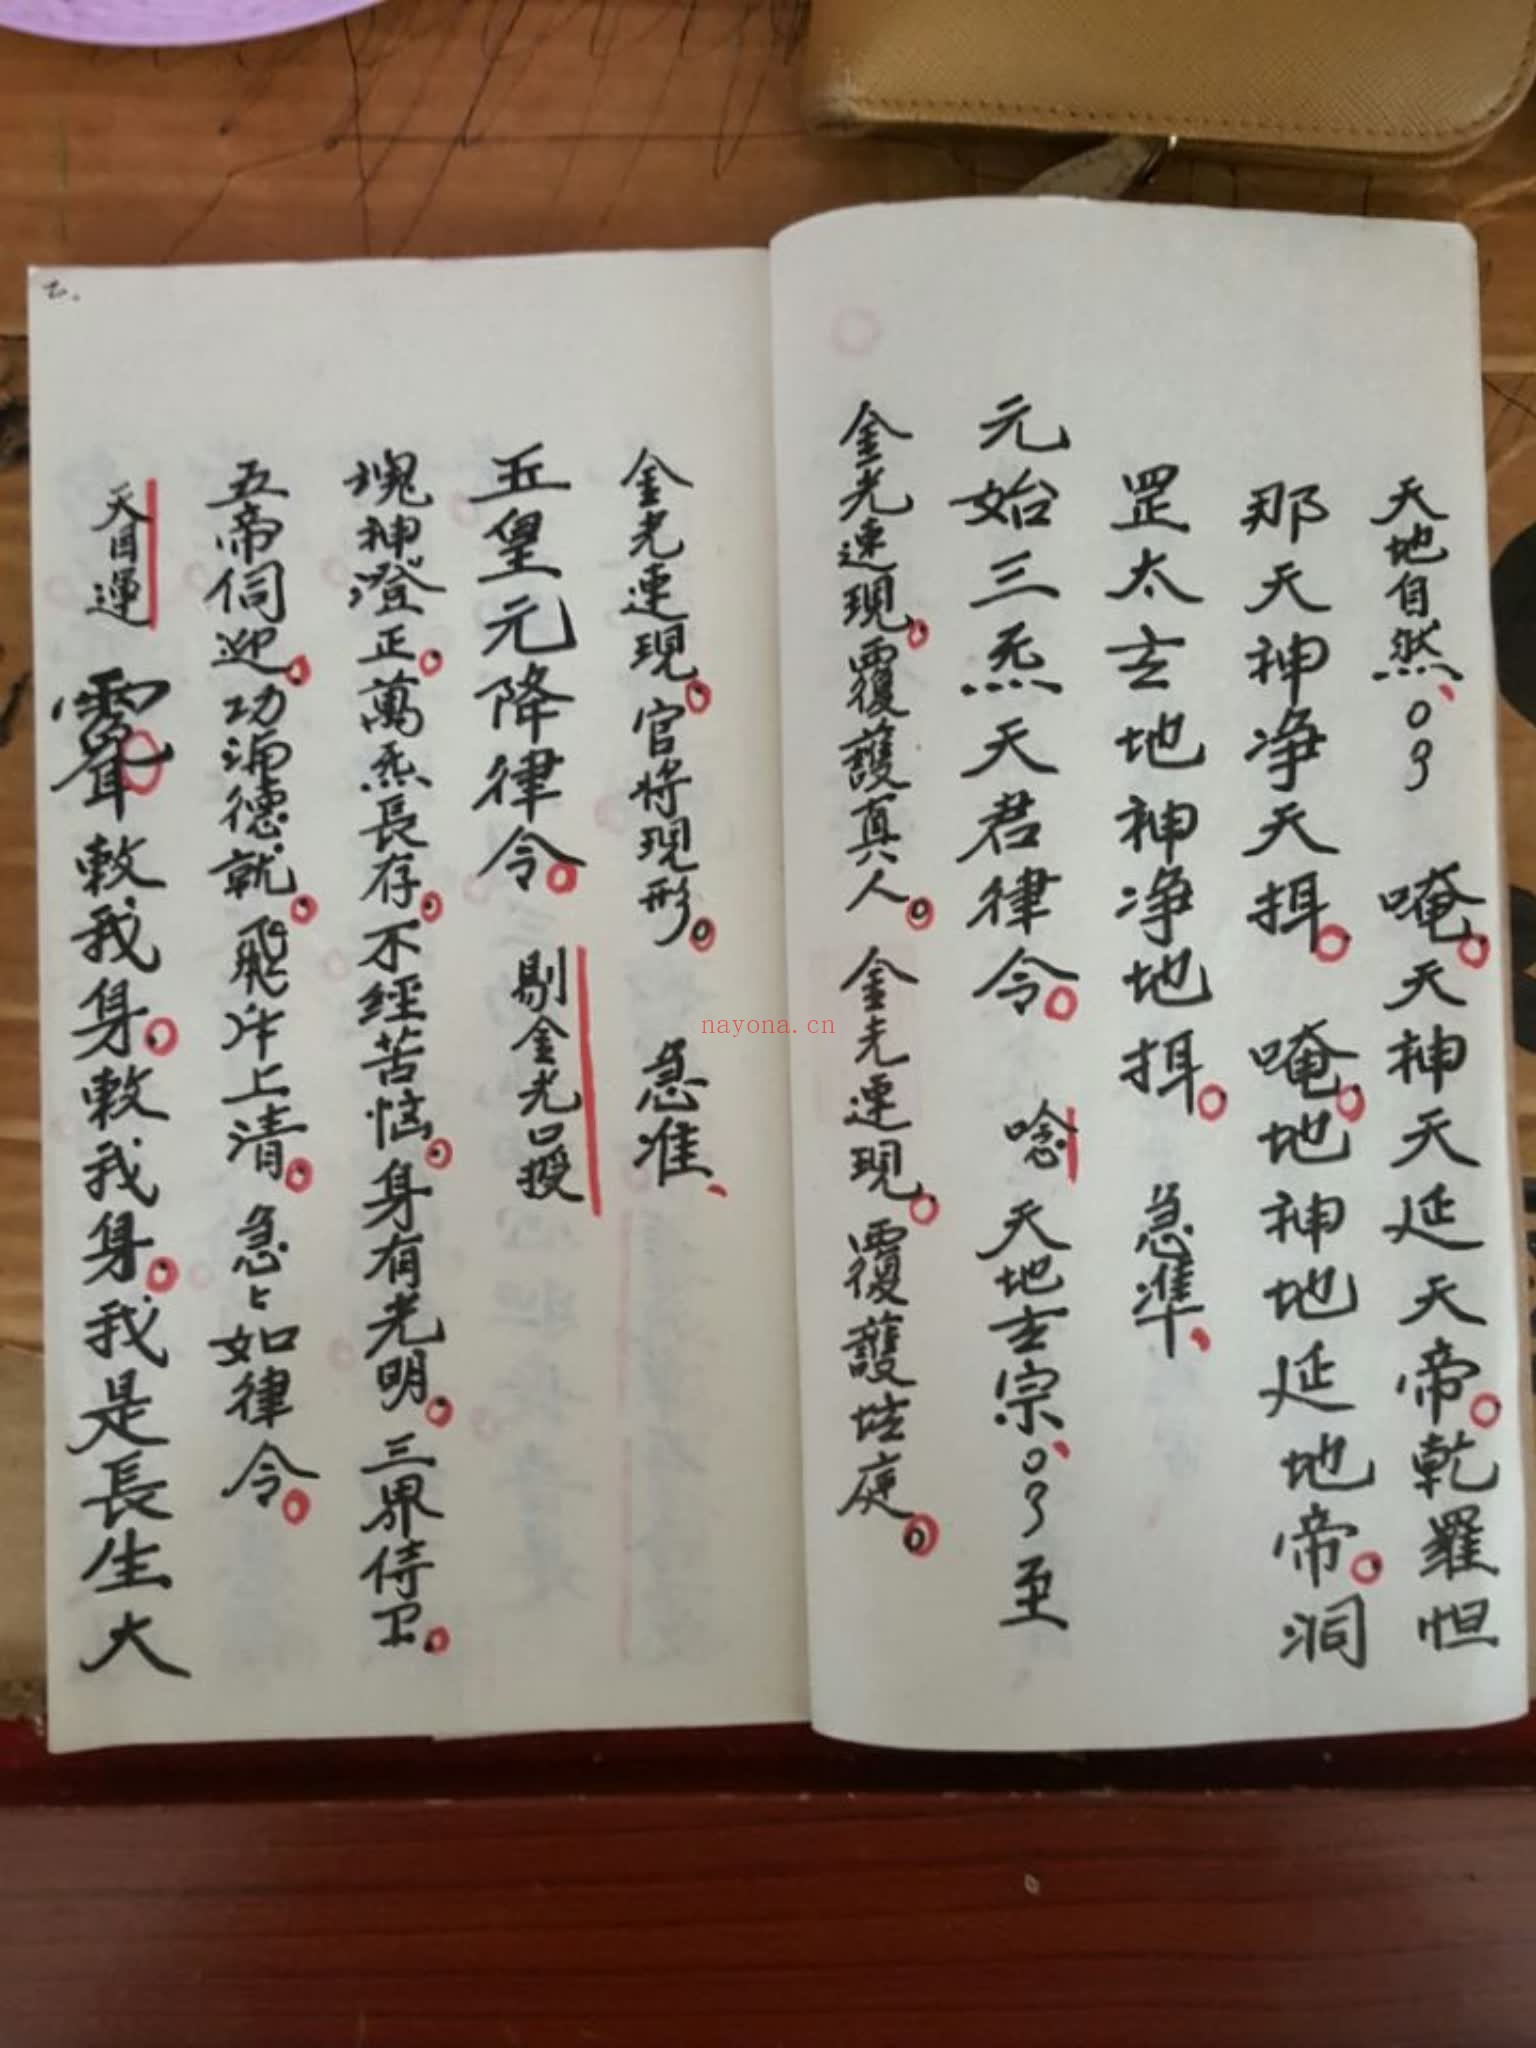 天地自然、〇〇 唵。天神天延天帝。乾羅怛
那天神净天揖。唵。地神地延地帝。洞
罡太玄地神净地揖。急準、
元始三炁天君律令。唸天地玄宗、〇〇至
金光速現。覆護真人。金光速現。覆護壇庭。
金光速現。官將現形。急准、
五皇元降律令。剔金光口授
魂神澄正。萬炁長存。不經苦惱。身有光明。三界侍卫。
五帝伺迎。功滿德就。飛昇上清。急々如律令。
天目運 敕我身。敕我身。我是長生大
nayona.cn